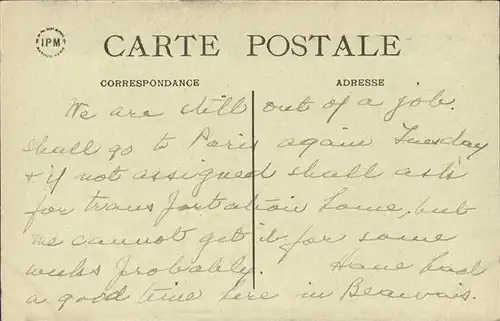 IPM
CARTE POSTALE
CORRESPONDANCE ADRESSE
We are still out of a job.
shall go to Paris again Tuesday
+ if not assigned shall ask
for transportation home, but
we cannot get it for some
weeks probably. Have had
a good time here in Beauvais.